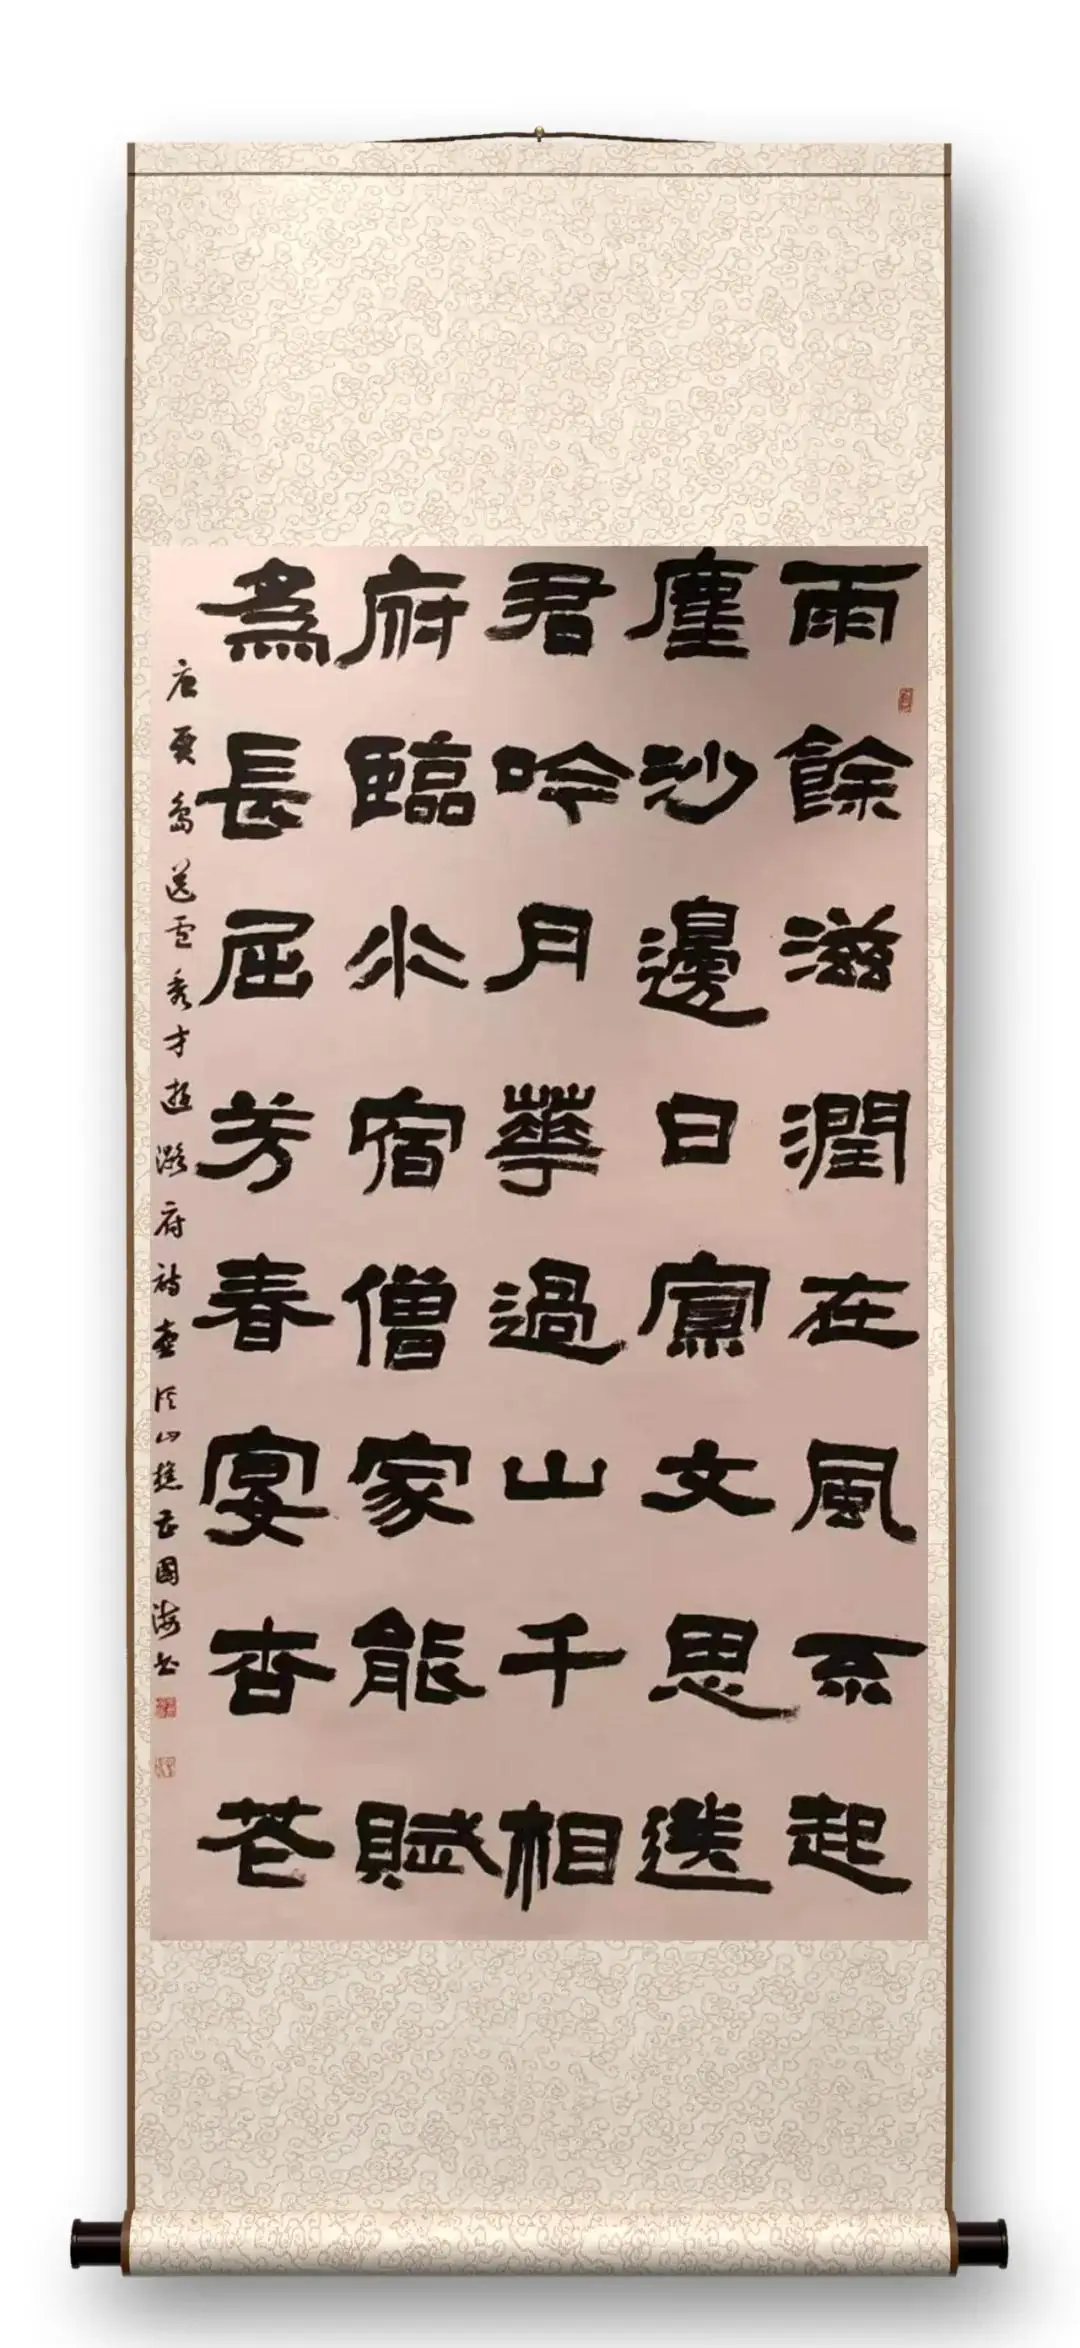 雨餘滋潤在風不起
塵沙邊日寡文思送
君吟月華過山千相
府臨水宿僧家能賦
為長屈芳春宴杏花
唐賈島送秀才遊潞府詩山樵國海書